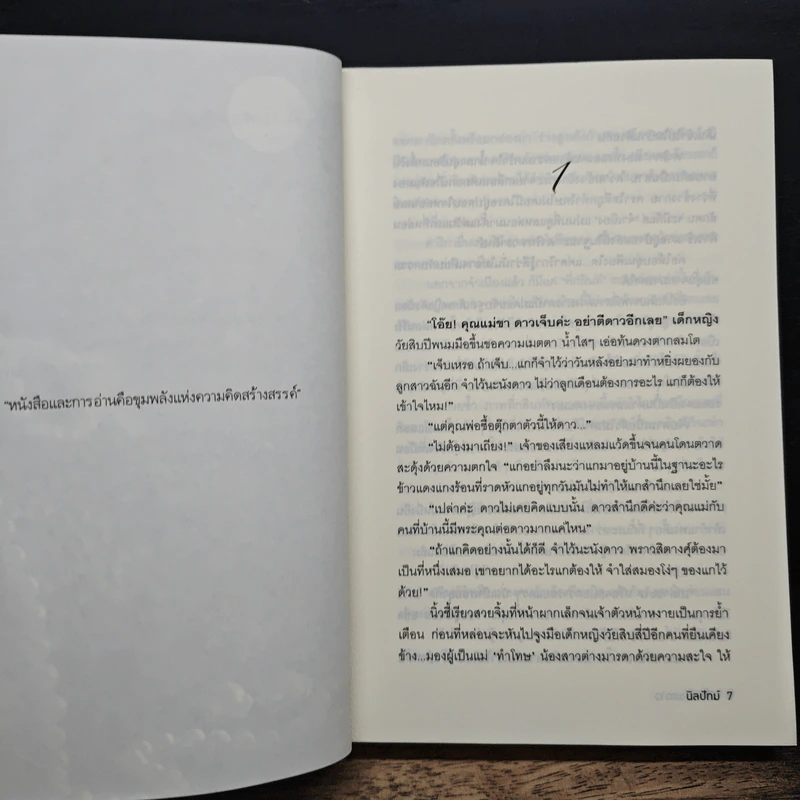 "หนังสือและการอ่านคือขุมพลังแห่งความคิดสร้างสรรค์"
1
"โอ๊ย! คุณแม่ขา ดาวเจ็บค่ะ อย่าตีดาวอีกเลย" เด็กหญิง
วัยสิบปีพนมมือขึ้นขอความเมตตา น้ำใสๆ เอ่อท้นดวงตากลมโต
"เจ็บเหรอ ถ้าเจ็บ...แกก็จำไว้ว่าวันหลังอย่ามาทำหยิ่งผยองกับ
ลูกสาวฉันอีก จำไว้นะนังดาว ไม่ว่าลูกเดือนต้องการอะไร แกก็ต้องให้
เข้าใจไหม!"
"แต่คุณพ่อซื้อตุ๊กตาตัวนี้ให้ดาว..."
"ไม่ต้องมาเถียง!" เจ้าของเสียงแหลมแว้ดขึ้นจนคนโดนตวาด
สะดุ้งด้วยความตกใจ "แกอย่าลืมนะว่าแกมาอยู่บ้านนี้ในฐานะอะไร
ข้าวแดงแกงร้อนที่ราดหัวแกอยู่ทุกวันมันไม่ทำให้แกสำนึกเลยใช่มั้ย"
"เปล่าค่ะ ดาวไม่เคยคิดแบบนั้น ดาวสำนึกดีค่ะว่าคุณแม่กับ
คนที่บ้านนี้มีพระคุณต่อดาวมากแค่ไหน"
"ถ้าแกคิดอย่างนั้นได้ก็ดี จำไว้นะนังดาว พราวสิตางศุ์ต้องมา
เป็นที่หนึ่งเสมอ เขาอยากได้อะไรแกต้องให้ จำใส่สมองโง่ๆ ของแกไว้
ด้วย!"
นิ้วชี้เรียวสวยจิ้มที่หน้าผากเล็กจนเจ้าตัวหน้าหงายเป็นการย้ำ
เตือน ก่อนที่หล่อนจะหันไปจูงมือเด็กหญิงวัยสิบสี่ปีอีกคนที่ยืนเคียง
ข้าง...มองผู้เป็นแม่ 'ทำโทษ' น้องสาวต่างมารดาด้วยความสะใจ ให้
นิลปัทม์ 7